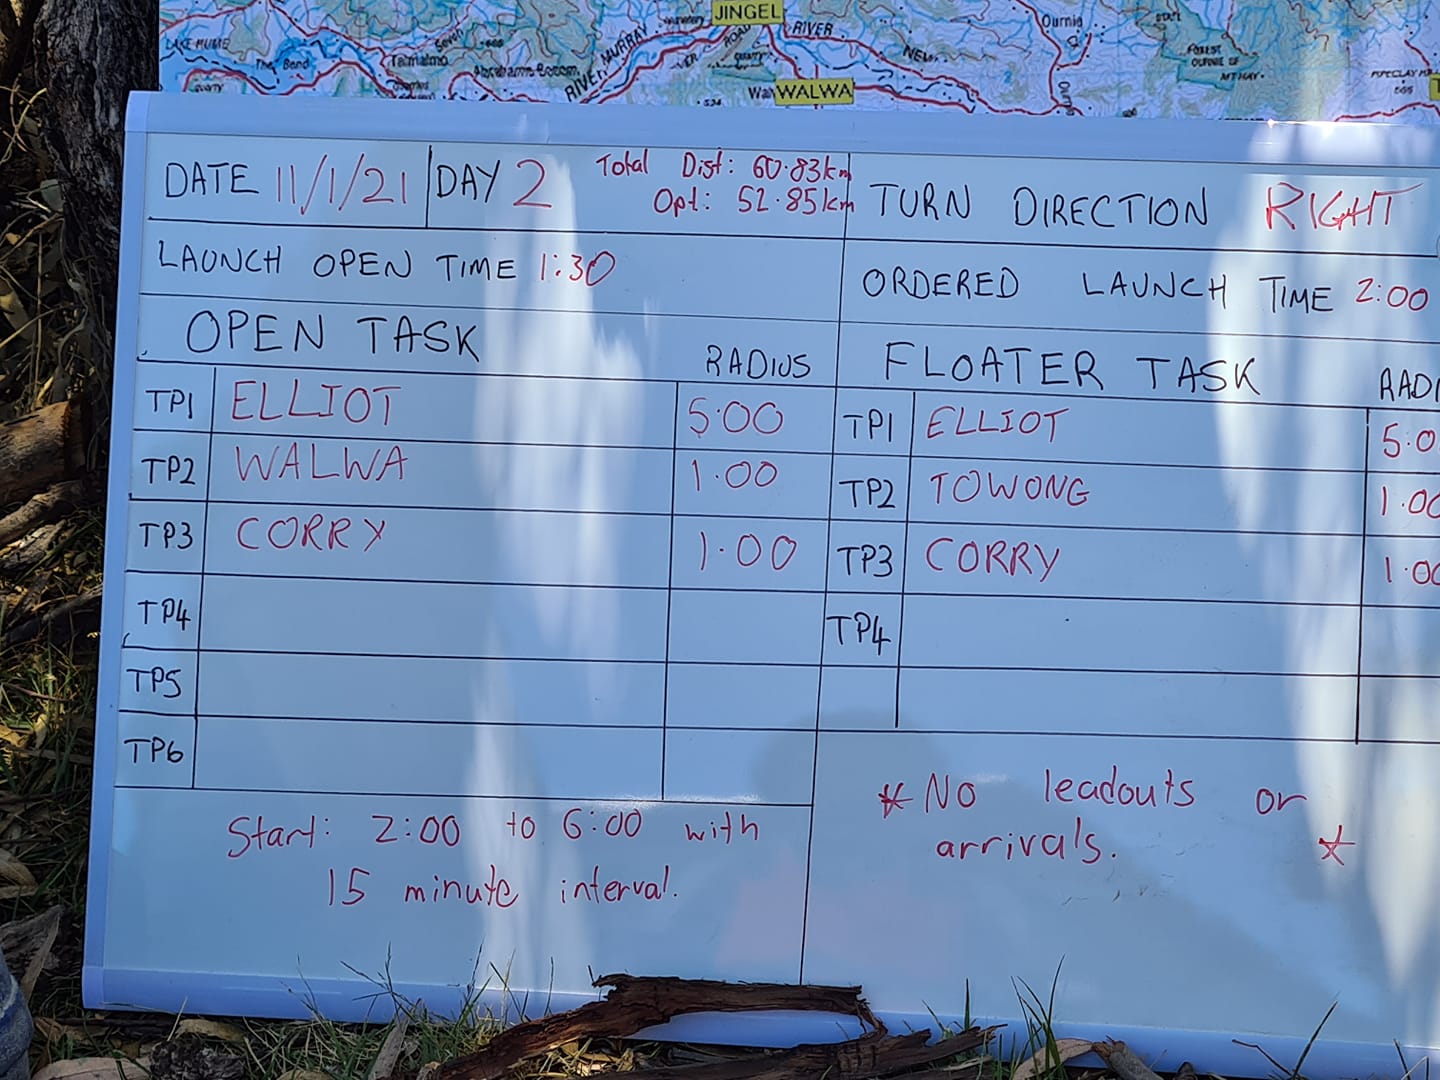 JINGEL
RIVER
MURRAY
RIVER
LAKE HUME
The Bend
Talmalmo
Abrahams Bosom
Ournie
WALWA
DATE 11/1/21 DAY 2 Total Dist: 60.83km
Opt: 52.85km
TURN DIRECTION RIGHT
LAUNCH OPEN TIME 1:30
ORDERED LAUNCH TIME 2:00
OPEN TASK RADIUS
FLOATER TASK RADI
TP1 ELLIOT 5.00
TP1 ELLIOT 5.0
TP2 WALWA 1.00
TP2 TOWONG 1.00
TP3 CORRY 1.00
TP3 CORRY 1.00
TP4
TP4
TP5
TP6
Start: 2:00 to 6:00 with
15 minute interval.
* No leadouts or
arrivals. *